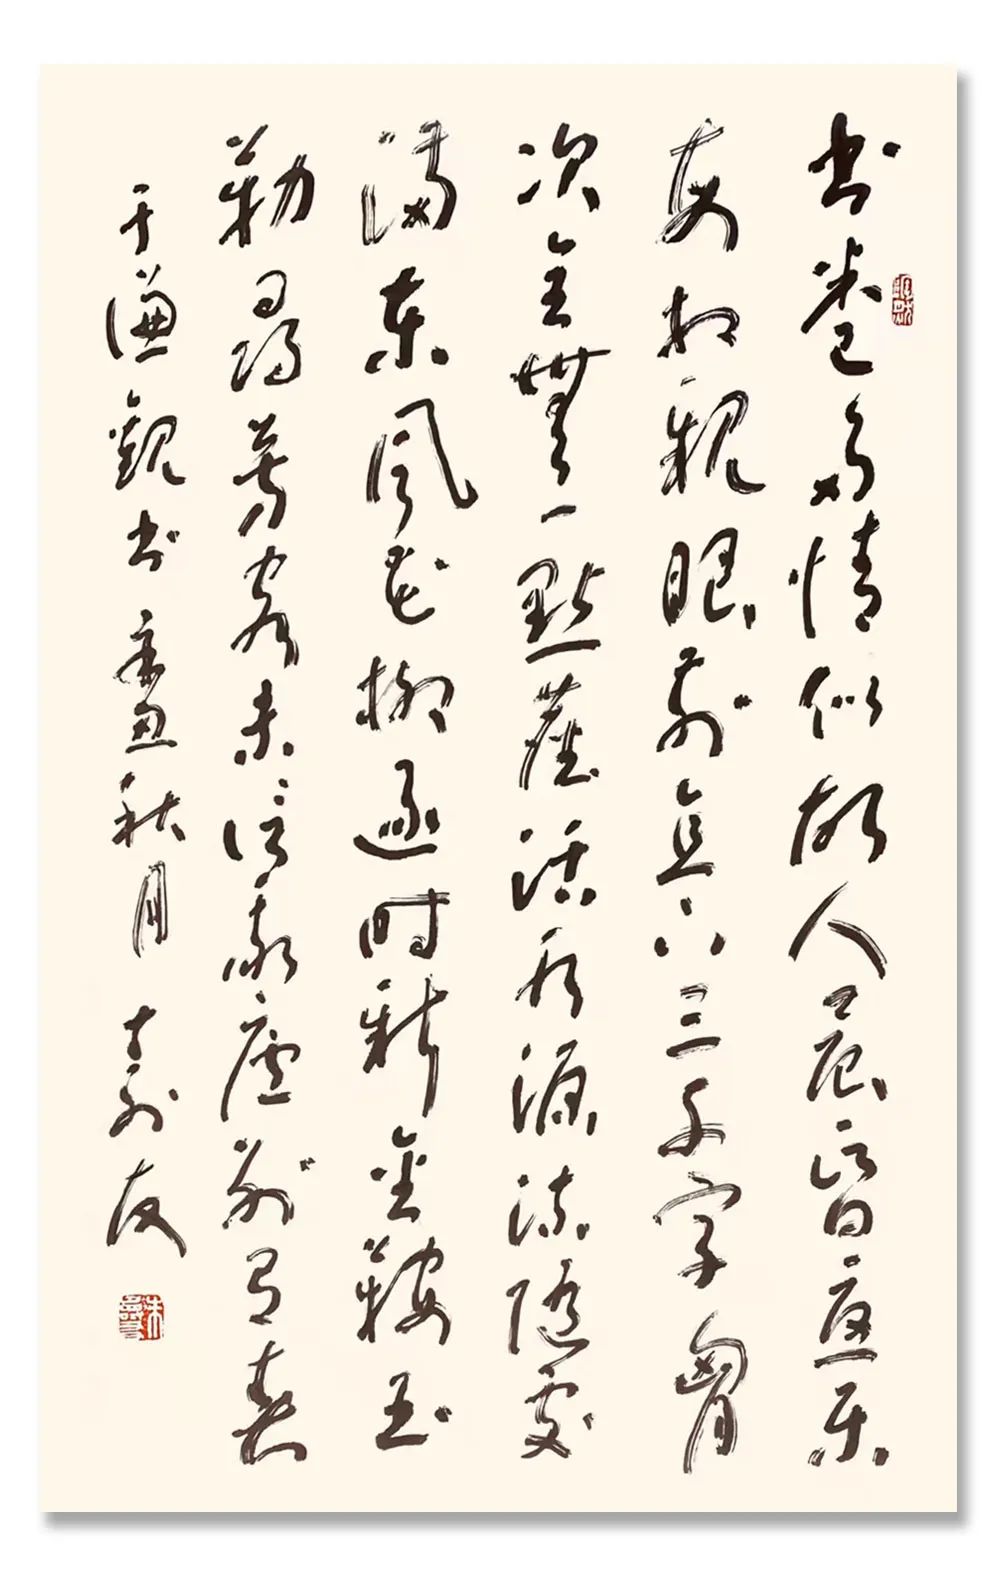 书卷多情似故人晨昏憂乐
每相親眼前直下三千字胸
次全無一點塵活水源流随處
满东风花柳逐时新金鞍玉
勒尋芳客未信我廬别有春
于谦觀书 辛丑秋月 友